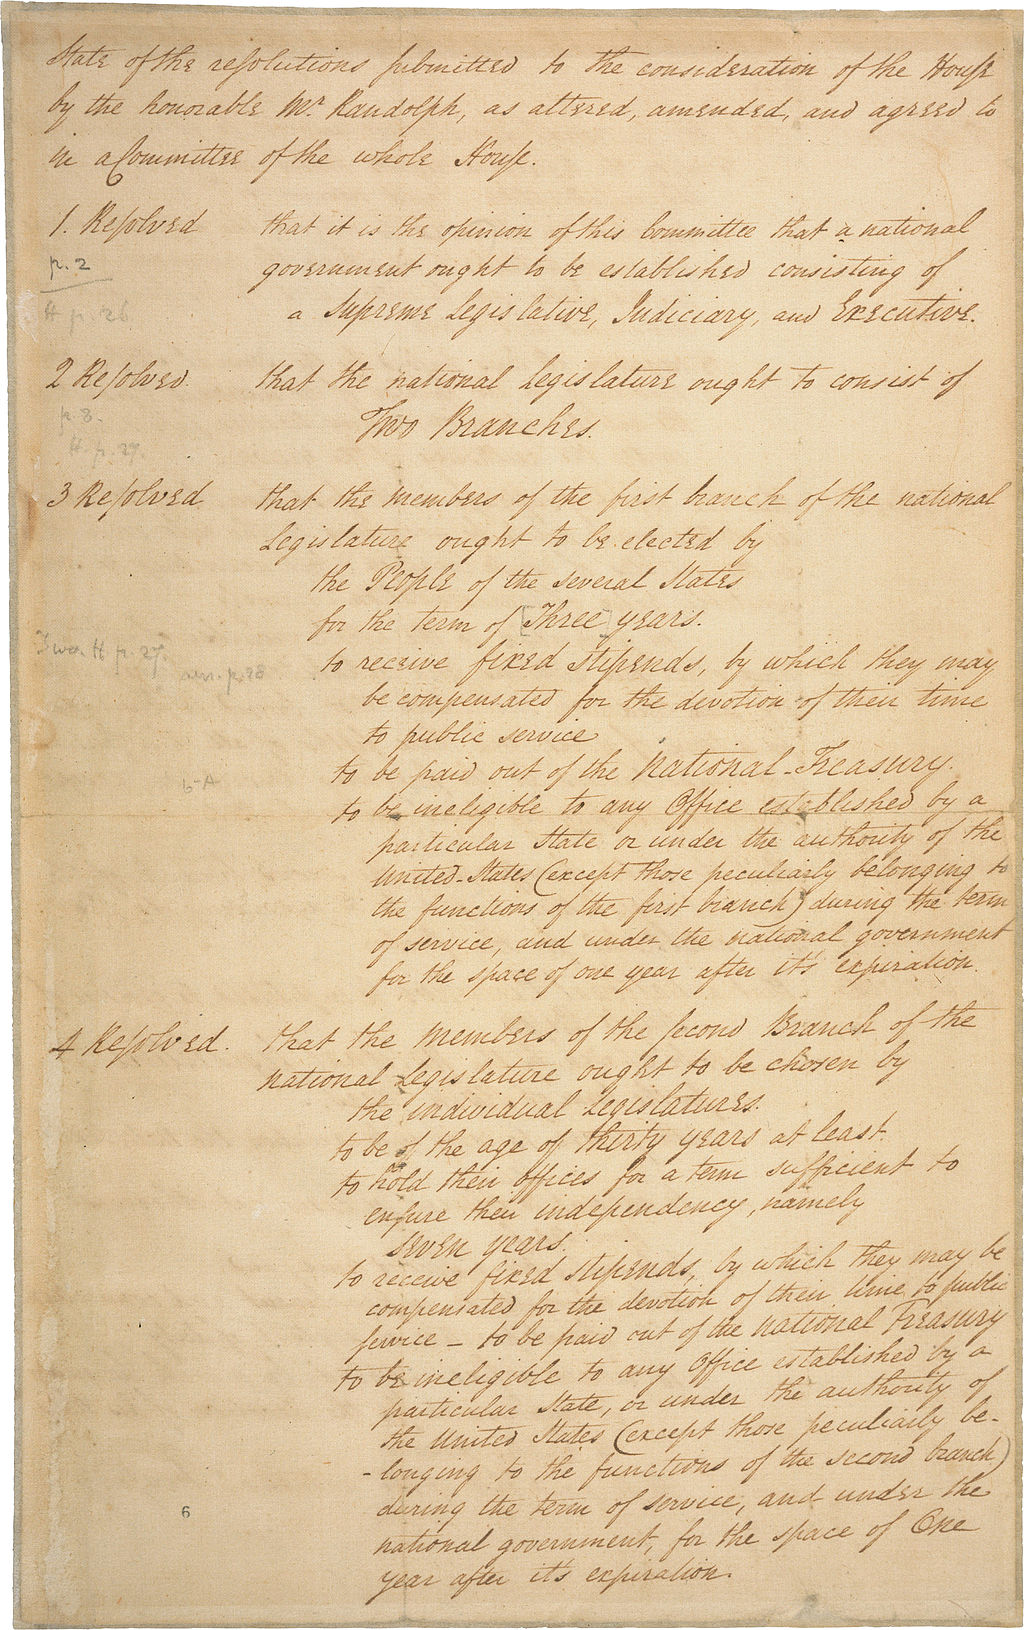 State of the resolutions submitted to the consideration of the House
by the honorable Mr. Randolph, as altered, amended, and agreed to
in a Committee of the whole House.
1. Resolved that it is the opinion of this Committee that a national
p. 2
government ought to be established consisting of
H p. 26.
a Supreme Legislative, Judiciary, and Executive.
2 Resolved. that the national Legislature ought to consist of
p. 8.
Two Branches.
H. p. 27.
3 Resolved that the Members of the first branch of the national
Legislature ought to be elected by
the People of the several States
for the term of [Three] years.
H p. 27.
to receive fixed stipends, by which they may
p. 28
be compensated for the devotion of their time
to public service
to be paid out of the National-Treasury.
to be ineligible to any Office established by a
particular State or under the authority of the
United-States (except those peculiarly belonging to
the functions of the first branch) during the term
of service, and under the national government
for the space of one year after it's expiration.
4 Resolved. that the Members of the second Branch of the
national Legislature ought to be chosen by
the individual Legislatures.
to be of the age of thirty years at least.
to hold their offices for a term sufficient to
ensure their independency, namely
seven years.
to receive fixed stipends, by which they may be
compensated for the devotion of their time to public
service – to be paid out of the National Treasury
to be ineligible to any Office established by a
particular State, or under the authority of
the United States (except those peculiarly be-
-longing to the functions of the second branch)
during the term of service, and under the
6
national government, for the space of One
year after it's expiration.